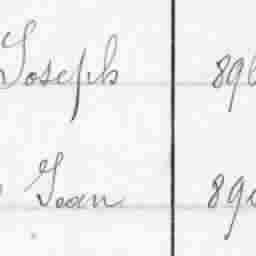 Joseph 896
Jean 890